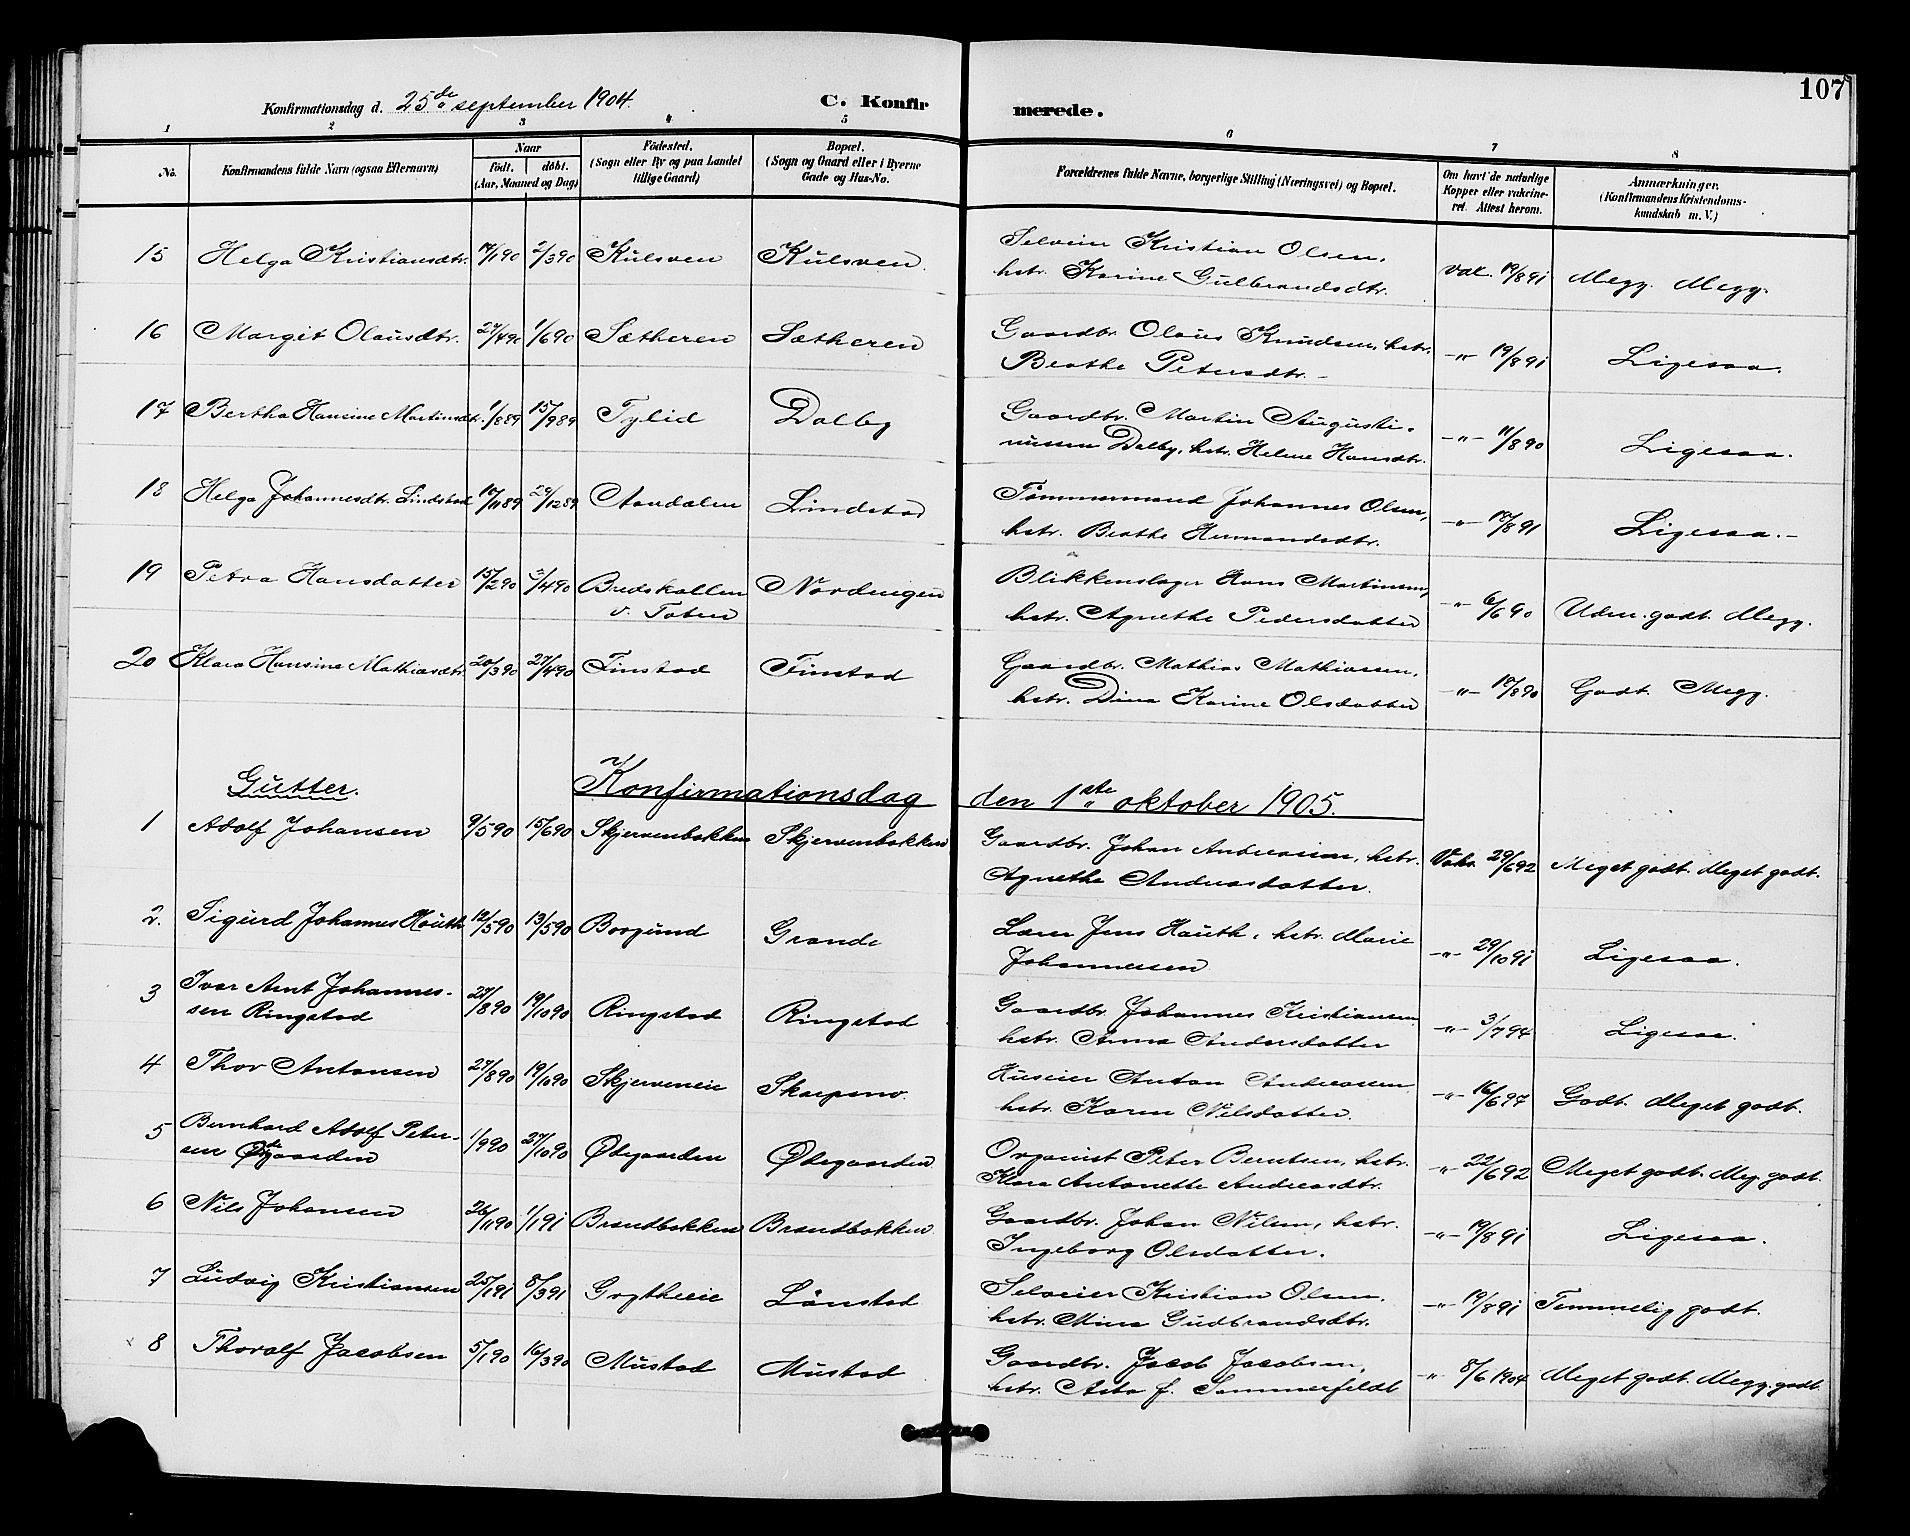 107
Konfirmationsdag d. 25de september 1904. C. Konfirmerede.
1 2 3 4 5 6 7 8
No. Konfirmandens fulde Navn (ogsaa Efternavn) Naar født. døbt. (Aar, Maaned og Dag) Fødested. (Sogn eller By og paa Landet tillige Gaard) Bopæl. (Sogn og Gaard eller i Byerne Gade og Hus-No. Forældrenes fulde Navne, borgerlige Stilling (Næringsvei) og Bopæl. Om havt de naturlige Kopper eller vakcineret. Attest herom. Anmærkninger. (Konfirmandens Kristendomskundskab m. V.)
15 Helga Kristiansdtr. 17/1 90 2/3 90 Kulsven Kulsven. Selveier Kristian Olsen, hstr. Karine Gulbrandsdtr. vac. 19/8 91 Megg. Megg.
16 Margit Olausdtr. 27/4 90 1/6 90 Sætheren Sætheren Gaardbr. Olaus Knudsen, hstr. Beathe Petersdtr. - -"- 19/8 91 Ligesaa.
17 Bertha Hansine Martinsdtr. 1/8 89 15/9 89 Tylid Dalby Gaardbr. Martin Augustinussen Dalby, hstr. Helene Hansdtr. -"- 11/8 90 Ligesaa.
18 Helga Johannesdtr. Lindstad 10/11 89 29/12 89 Aandalen Lindstad Tømmermand Johannes Olsen, hstr. Beathe Hermandsdtr. -"- 19/8 91 Ligesaa.-
19 Petra Hansdatter 15/2 90 3/4 90 Bredskallen v. Toten Nordengen Blikkenslager Hans Martinsen, hstr. Agnethe Pedersdatter -"- 6/6 90 Udm. godt. Megg.
20 Klara Hansine Mathiasdtr. 20/3 90 27/4 90 Finstad Finstad Gaardbr. Mathias Mathiassen, hstr. Dina Karine Olsdatter -"- 19/8 90 Godt. Megg.
Gutter. Konfirmationsdag den 1ste oktober 1905.
1 Adolf Johansen 9/5 90 15/6 90 Skjervenbakken Skjervenbakken Gaardbr. Johan Andreassen, hstr. Agnethe Andreasdatter. Vakc. 29/6 92 Meget godt. Meget godt.
2. Sigurd Johannes Hauth 12/5 90 13/5 90 Borgund Grande Lærer Jens Hauth, hstr. Marie Johannessen -"- 29/10 91 Ligesaa.
3 Ivar Arnt Johannessen Ringstad 27/8 90 19/10 90 Ringstad Ringstad Gaardbr. Johannes Kristiansen, hstr. Anna Andersdatter -"- 3/7 94 Ligesaa.
4 Thor Antonsen 27/8 90 19/10 90 Skjerveneie Skarpsno. Huseier Anton Andreassen hstr. Karen Nilsdatter. -"- 16/6 97 Godt. Meget godt.
5 Bernhard Adolf Petersen Ødegaarden 1/9 90 27/10 90 Ødegaarden Ødegaarden Organist Peter Berntsen, hstr. Klara Antonette Andreasdtr. -"- 22/6 92 Meget godt. Meg. godt.
6 Nils Johansen 26/11 90 1/1 91 Brandbakken Brandbakken. Gaardbr. Johan Nilsen, hstr. Ingeborg Olsdatter. -"- 19/8 91 Ligesaa.
7 Ludvig Kristiansen 25/1 91 8/3 91 Grytheeie Lønstad Selveier Kristian Olsen, hstr. Mina Gudbrandsdtr. -"- 19/8 91 Temmelig godt.
8 Thoralf Jacobsen 5/1 90 16/3 90 Mustad Mustad Gaardbr. Jacob Jacobsen, hstr. Asta f. Sommerfeldt -"- 8/6 1904 Meget godt. Megg. godt.